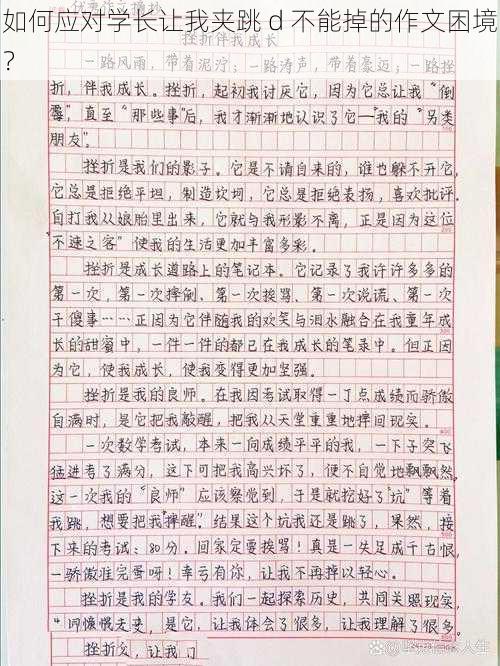 如何应对学长让我夹跳 d 不能掉的作文困境
？
挫折伴我成长
一路风雨，带着泥泞；一路涛声，带着豪迈；一路挫
折，伴我成长。挫折，起初我讨厌它，因为它总让我“倒
霉”，直至“那些事”后，我才渐渐地认识了它—我的“另类
朋友”。
挫折是我们的影子。它是不请自来的，谁也躲不开它，
它总是拒绝平坦，制造坎坷，它总是拒绝表扬，喜欢批评。
自打我从娘胎里出来，它就与我形影不离，正是因为这位
“不速之客”使我的生活更加丰富多彩。
挫折是成长道路上的笔记本。它记录了我许许多多的
第一次，第一次摔倒、第一次挨骂、第一次说谎、第一次
干傻事……正因为它伴随我的欢笑与泪水融合在我童年成
长的甜蜜中，一件一件的都已在我成长的笔录中。但正因
为它，使我成长，使我变得更加坚强。
挫折是我的良师。在我因考试取得一丁点成绩而骄傲
自满时，是它把我敲醒，把我从天堂重重地摔回现实。
一次数学考试，本来一向成绩平平的我，一下子突飞
猛进考了满分，这下可把我高兴坏了，便不自觉地飘飘然。
这一次我的“良师”应该察觉到，于是就挖好了“坑”等着
我跳，想要把我“摔醒”。结果这个坑我还是跳了，果然，接
下来的考试：80分。回家定要挨骂！真是一失足成千古恨，
一骄傲准完蛋呀！幸亏有你，让我不再掉以轻心。
挫折是我的学友。我们一起探索历史，共同关照现实，
是它，让我体会了很多，让我理解了很多。
挫折，让我